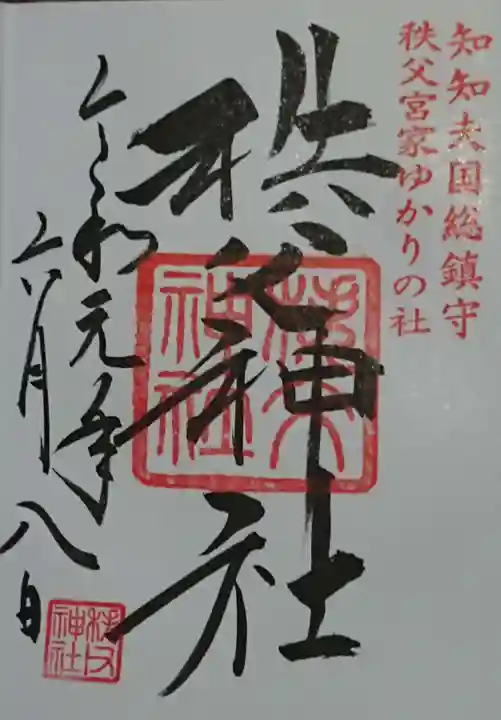 知知夫国総鎮守
秩父宮家ゆかりの社
秩父神社
秩父神社
令和元年
六月八日
秩父神社